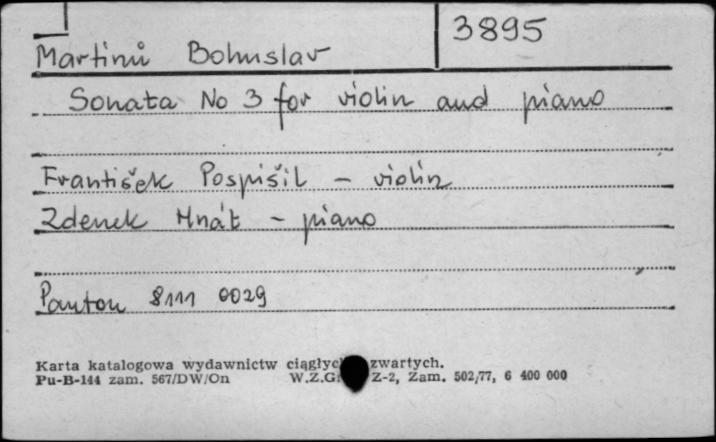 3895
Martinů Bohuslav
Sonata No 3 for violin and piano
František Pospišil – violin
Zdenek Hnát – piano
Panton 8111 0029
Karta katalogowa wydawnictw zwartych.
Pu-B-144 zam. 567/DW/On Z-2, Zam. 502/77, 6 400 000